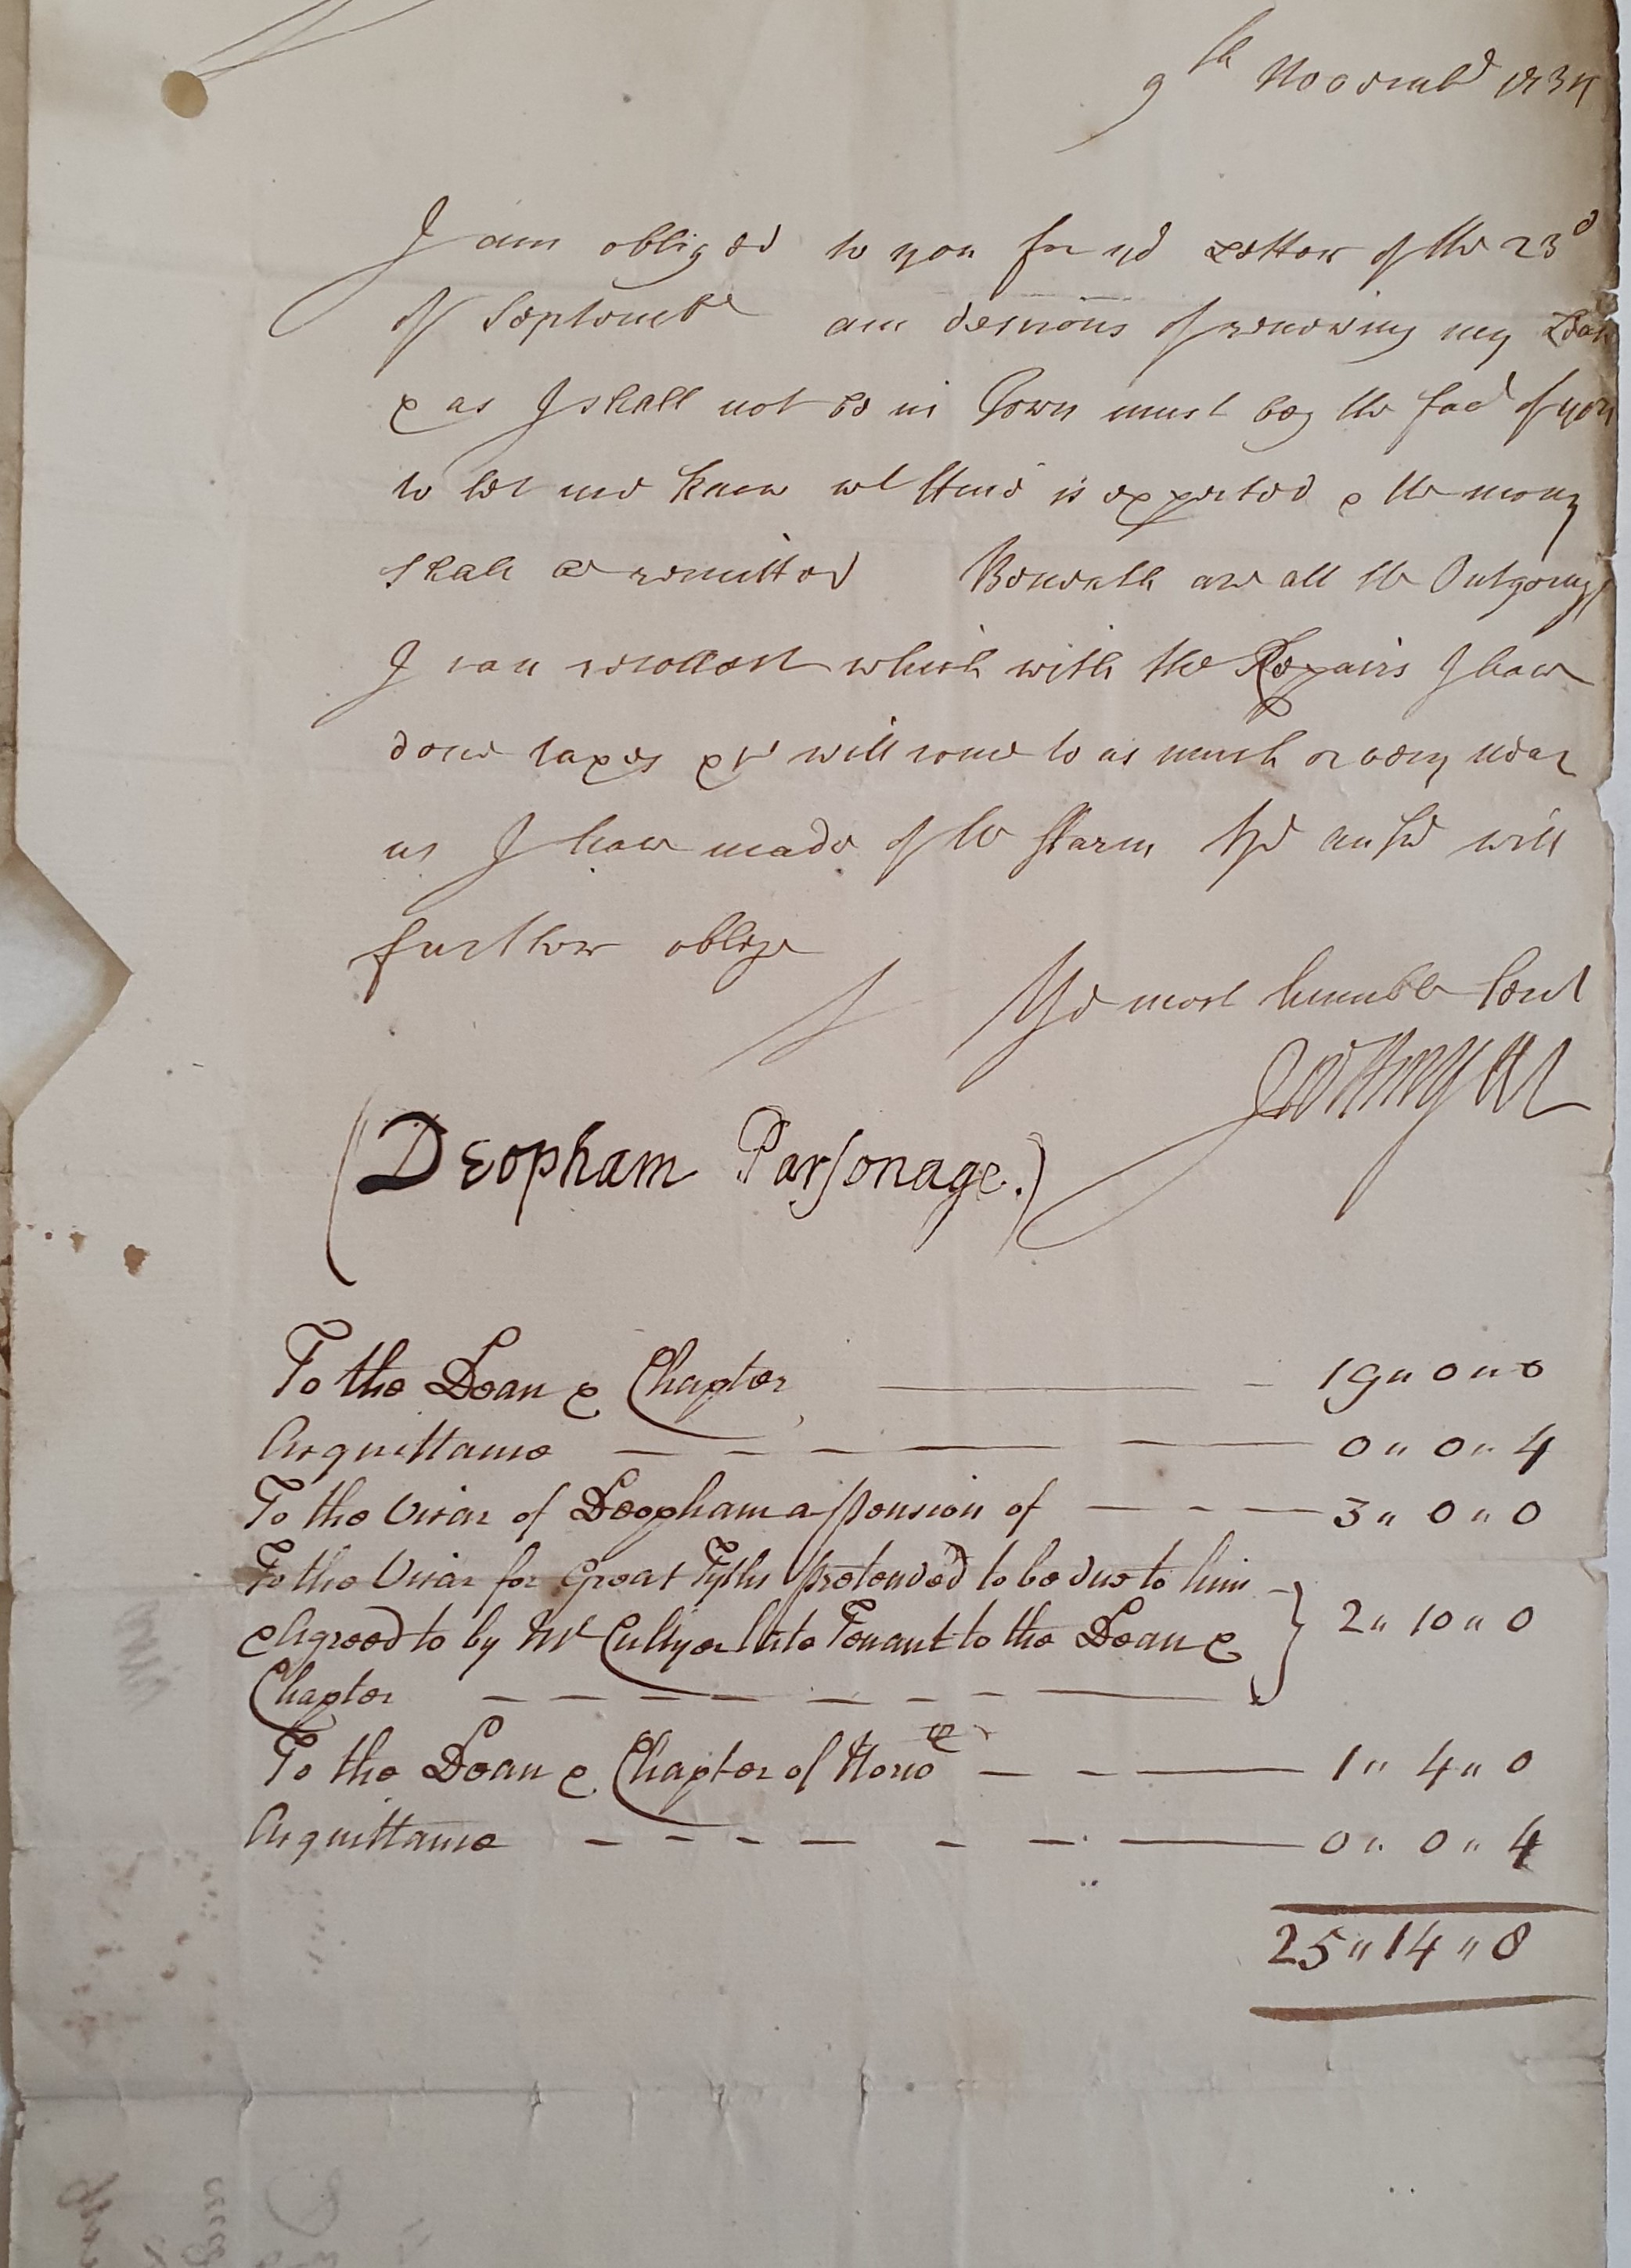 9th Novembr 1734
I am obliged to you for yr Letter of the 23d
of Septembr am desirous of renewing my Leas
& as I shall not be in Town must beg the favr of you
to let me know wt ffine is expected & the mony
shall be remitted Beneath are all the Outgoings
I can recollect which with the Repairs I have
done taxes &c will come to as much or very near
as I have made of the ffarm Yr ansr will
further oblige
Yr most humble Servt
(Deopham Parsonage.)
To the Dean & Chapter — 19 " 0 " 0
Acquittance — 0 " 0 " 4
To the Vicar of Deopham a pension of — 3 " 0 " 0
To the Vicar for Great Tyths pretended to be due to him
& Agreed to by Mr Cullyer late Tenant to the Dean & } 2 " 10 " 0
Chapter
To the Dean & Chapter of Norwch — 1 " 4 " 0
Acquittance — 0 " 0 " 4
25 " 14 " 8